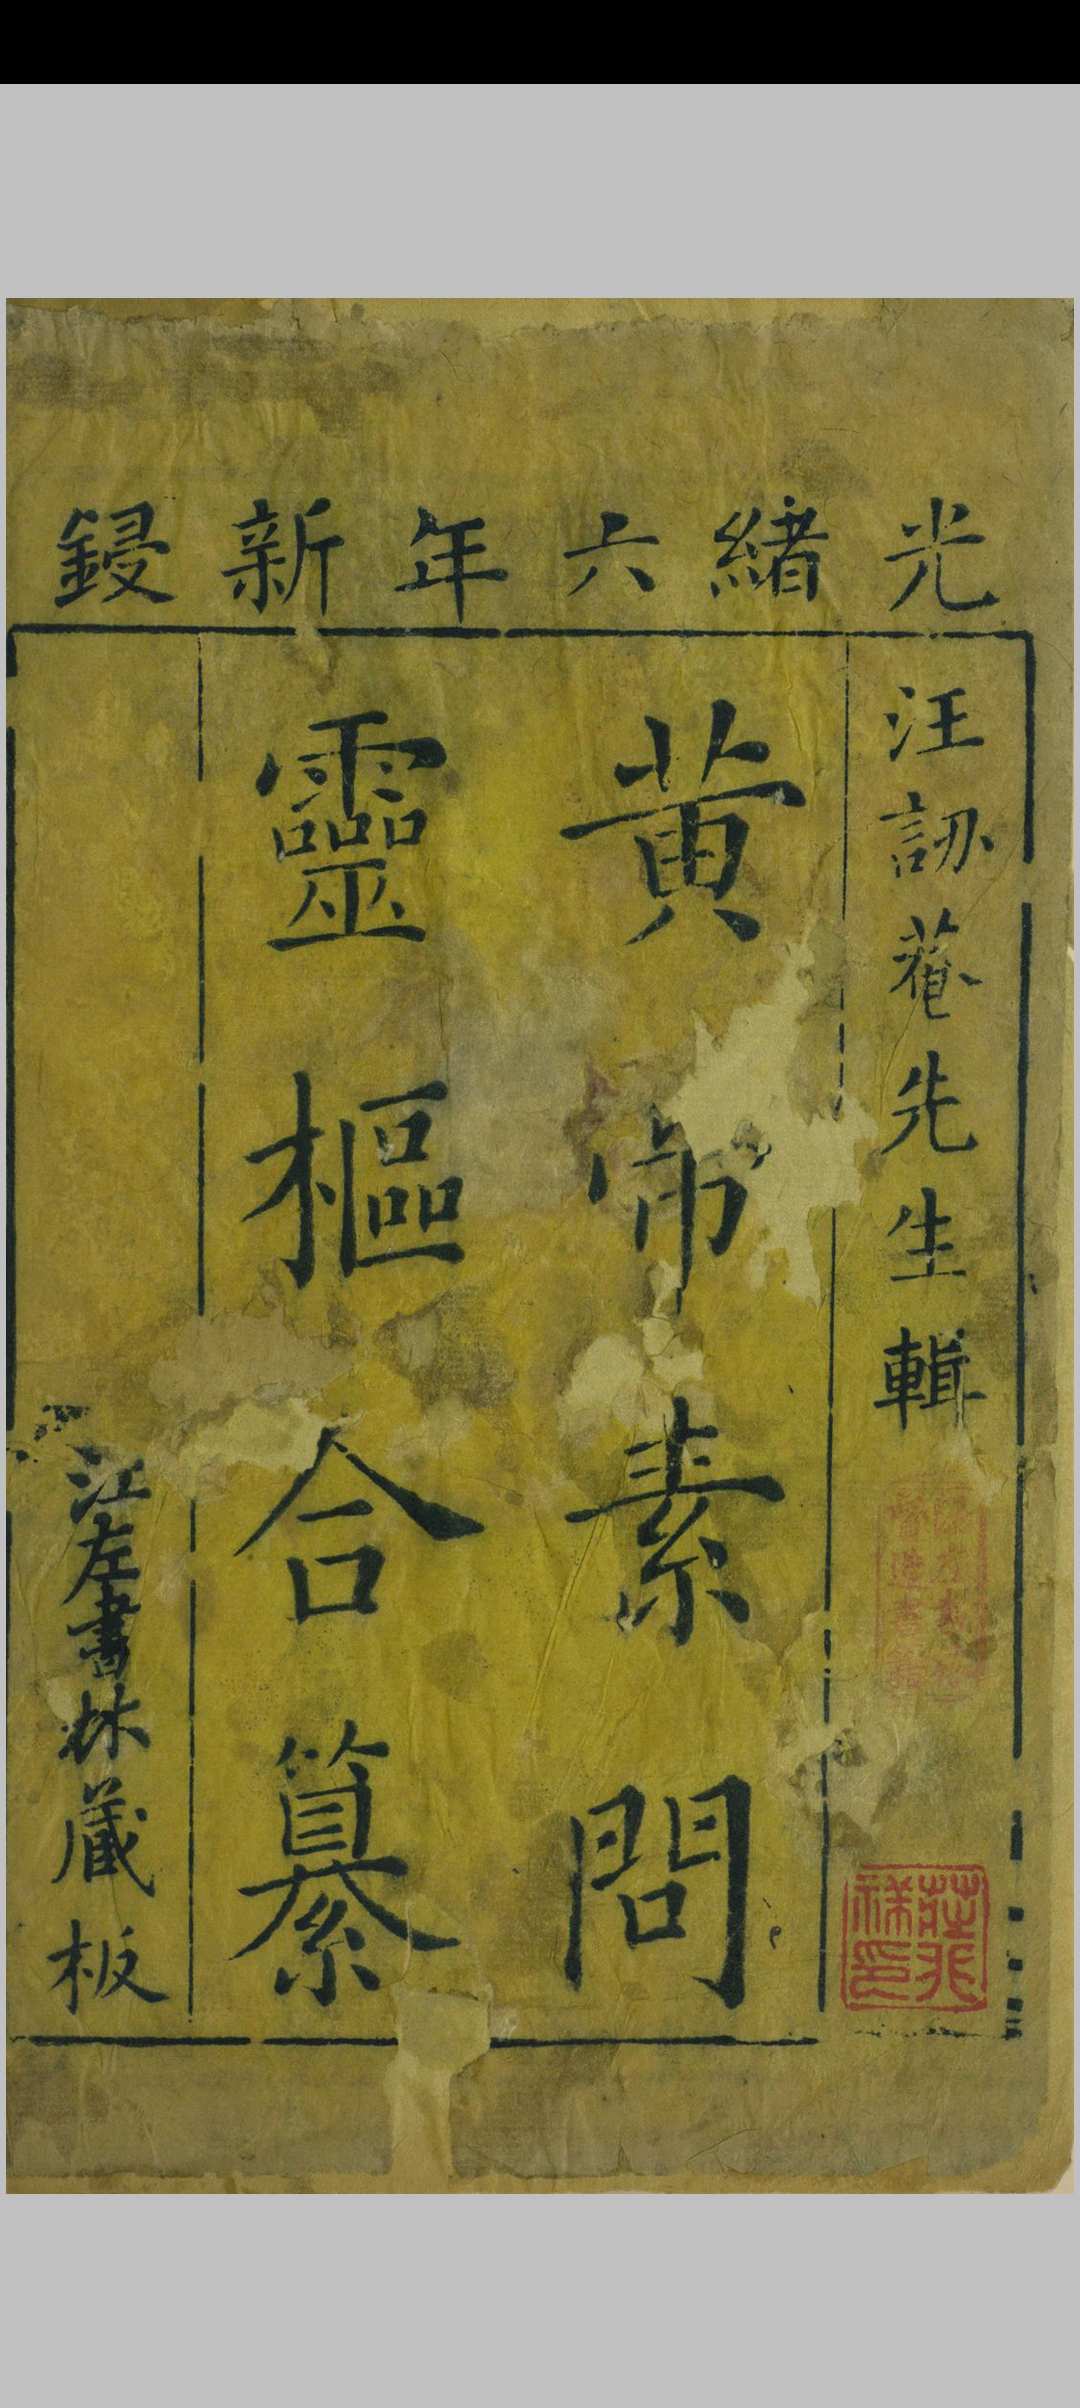 光緒六年新鋟
汪訒菴先生輯
黄帝素問
靈樞合纂
江左書林藏板